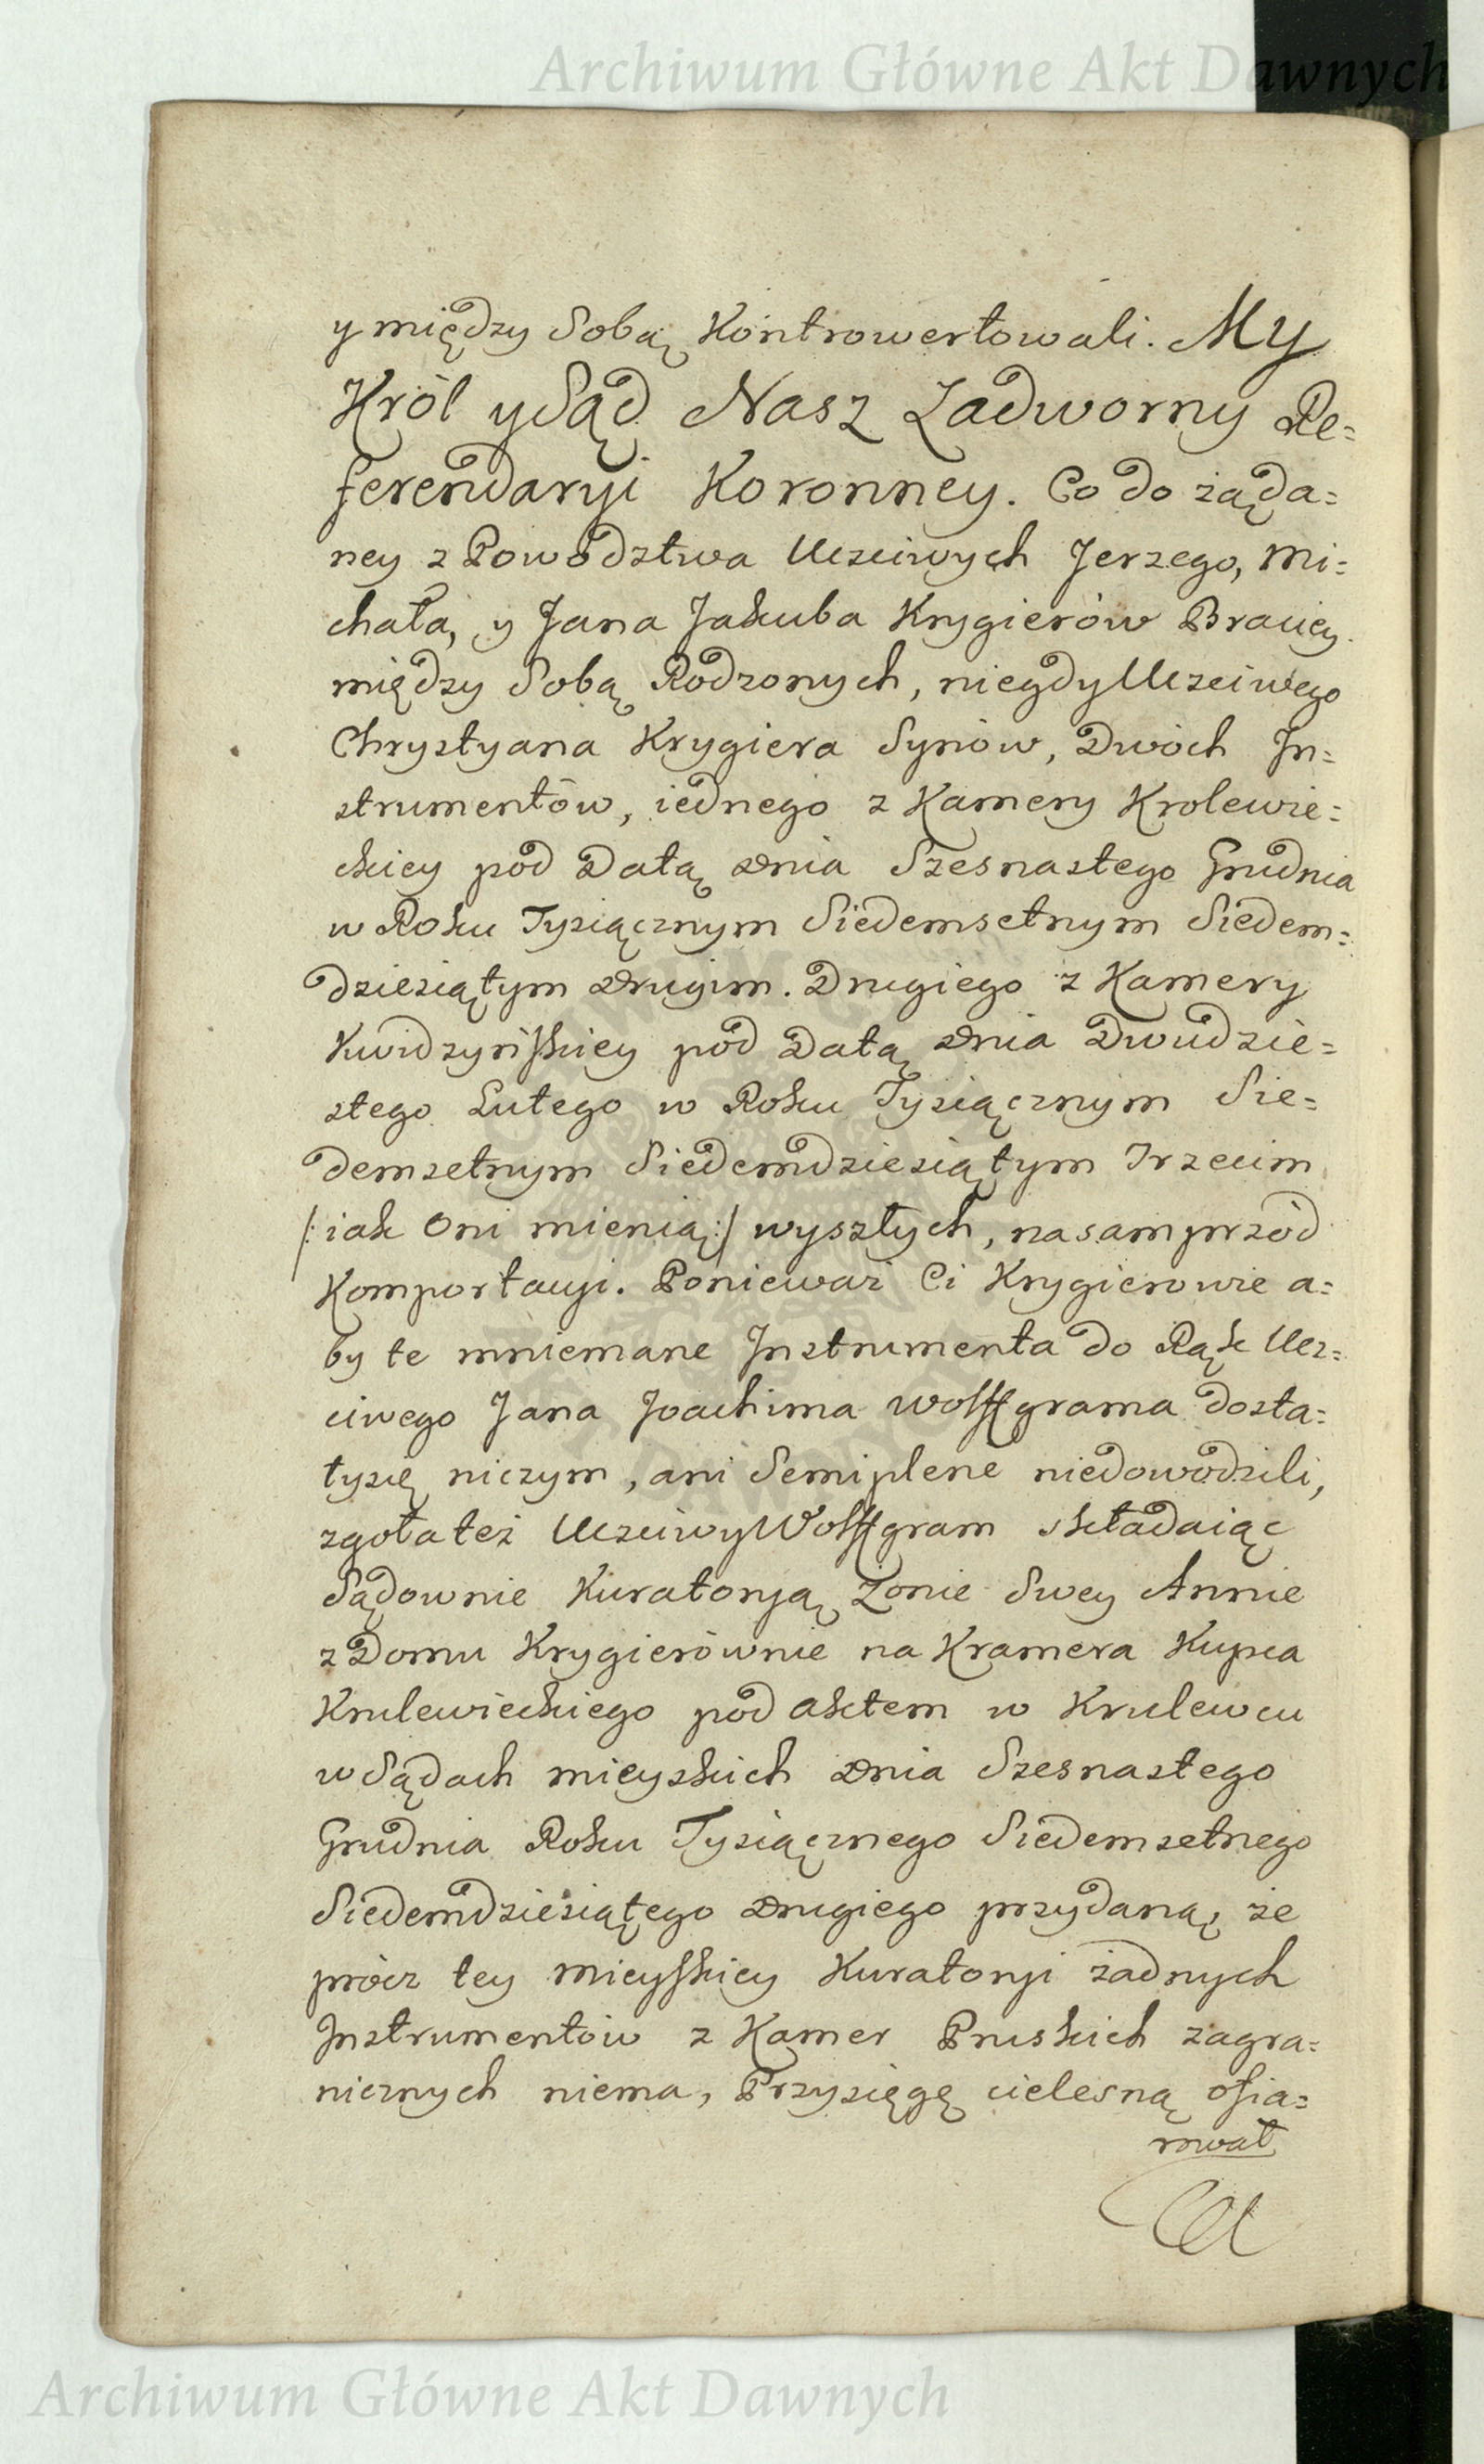 Archiwum Główne Akt Dawnych
y między Sobą Kontrowertowali. My
Król y Sąd Nasz Zadworny Re=
ferendaryi Koronney. Co do żąda=
ney z Powodztwa Uczciwych Jerzego, Mi=
chała, y Jana Jakuba Krygierów Braci
między Sobą Rodzonych, niegdy Uczciwego
Chrystyana Krygiera Synów, Dwóch In=
strumentów, iednego z Kamery Krolewie=
ckiey pod Datą Dnia Szesnastego Grudnia
w Roku Tysiącznym Siedemsetnym Siedem=
dziesiątym Drugim. Drugiego z Kamery
Kwidzyńskiey pod Datą Dnia Dwudzie=
stego Lutego w Roku Tysiącznym Sie=
demsetnym Siedemdziesiątym Trzecim
/: iak Oni mienią :/ wyszłych, nasamprzód
Komportacyi. Ponieważ Ci Krygierowie a=
by te mniemane Instrumenta do Rąk Ucz=
ciwego Jana Joachima Wolffgrama dosta=
ły się niczym, ani Semiplene niedowodzili,
zgoła też Uczciwy Wolffgram składaiąc
Sądownie Kuratoryą Żonie Swey Annie
z Domu Krygierównie na Kramera Kupca
Krulewieckiego pod aktem w Krulewcu
w Sądach mieyskich Dnia Szesnastego
Grudnia Roku Tysiącznego Siedemsetnego
Siedemdziesiątego Drugiego przydaną, że
prócz tey Mieyskiey Kuratoryi żadnych
Instrumentów z Kamer Pruskich zagra=
nicznych niema, Przysięgę cielesną ofia=
rował
Archiwum Główne Akt Dawnych